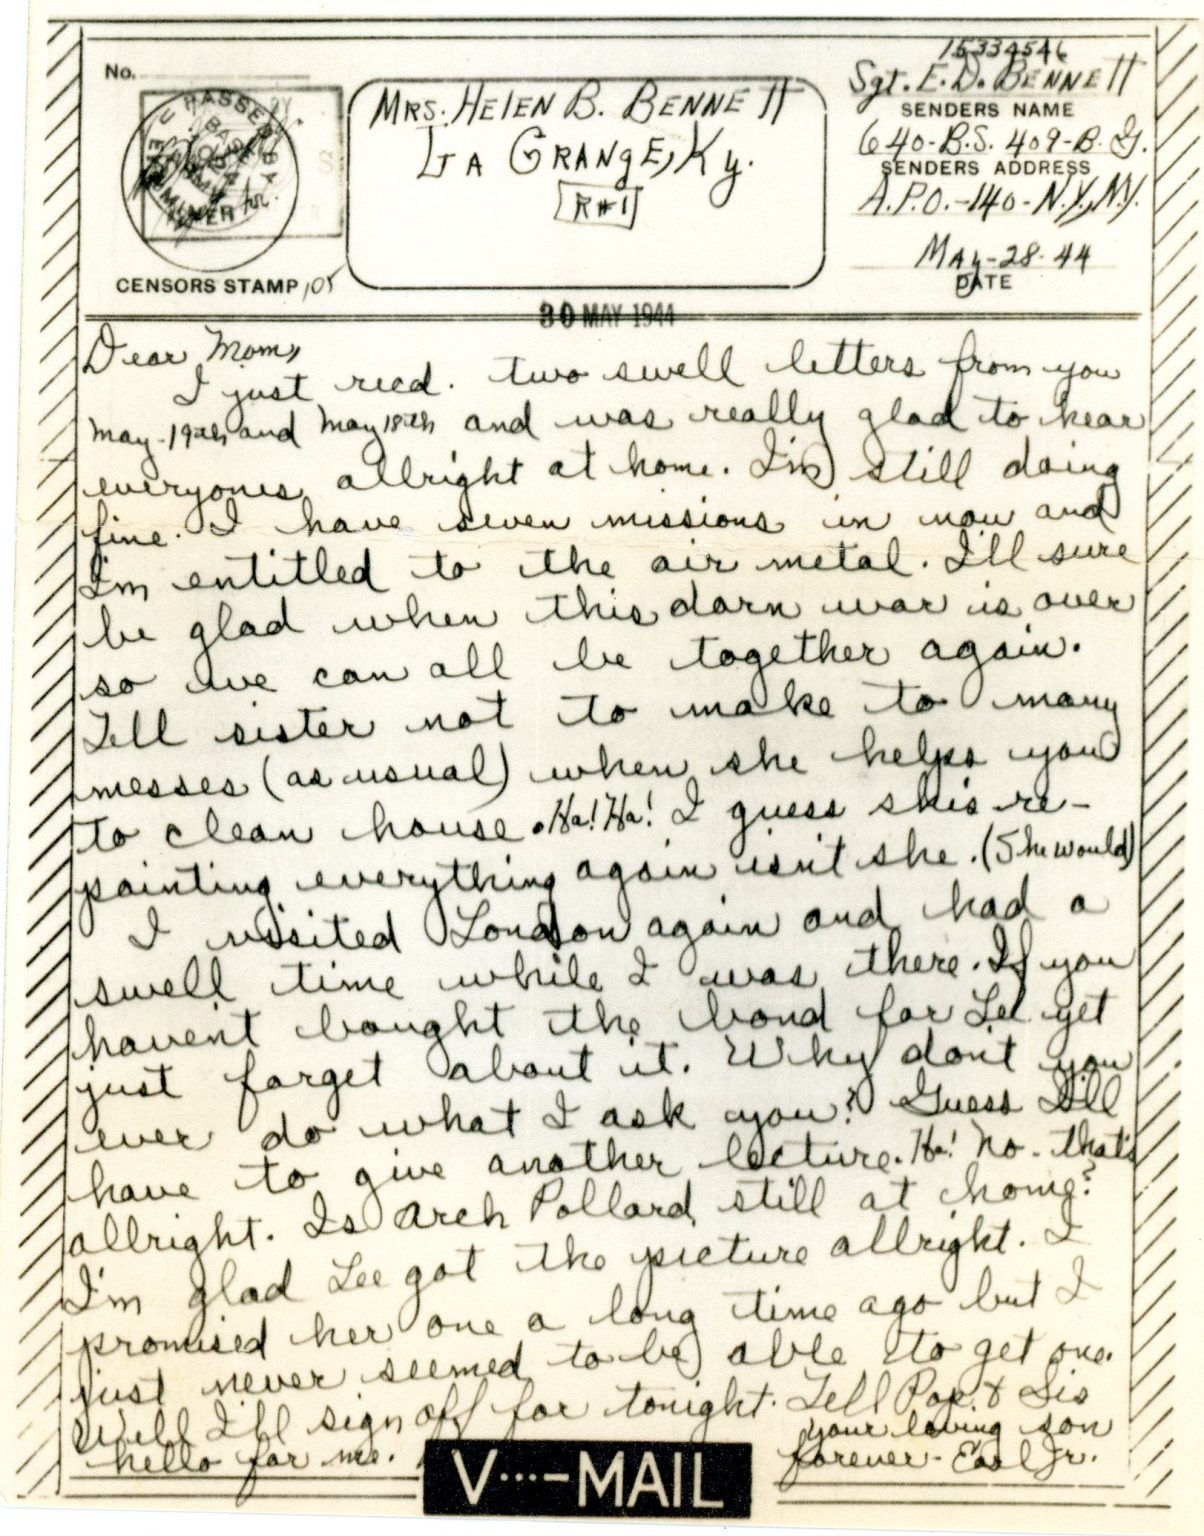 No.
PASSED BY
BASE
EXAMINER
CENSORS STAMP 105
MRS. HELEN B. BENNETT
LA GRANGE, Ky.
R#1
15334546
Sgt. E. D. BENNETT
SENDERS NAME
640-B.S. 409-B. G.
SENDERS ADDRESS
A.P.O.-140-N.Y., N.Y.
MAy-28-44
DATE
30 MAY 1944
Dear Mom,
I just recd. two swell letters from you
May-19th and May 18th and was really glad to hear
everyones allright at home. I'm still doing
fine. I have seven missions in now and
I'm entitled to the air metal. I'll sure
be glad when this darn war is over
so we can all be together again.
Tell sister not to make to many
messes (as usual) when she helps you
to clean house. Ha! Ha! I guess shis re-
painting everything again isn't she. (She would)
I vissited London again and had a
swell time while I was there. If you
haven't bought the bond for Lee yet
just forget about it. Why don't you
ever do what I ask you? Guess I'll
have to give another lecture. Ha! No - that's
allright. Is Arch Pollard still at home?
I'm glad Lee got the picture allright. I
promised her one a long time ago but I
just never seemed to be able to get one.
Well I'll sign off for tonight. Tell Pop & Sis
hello for me.
your loving son
forever - Earl Jr.
V···-MAIL